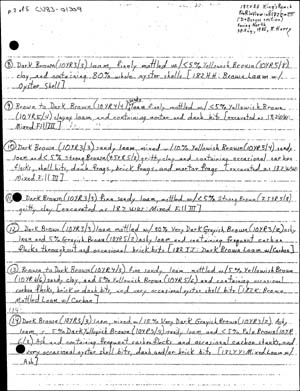 p. 2 of 5
1828RR King's Reach
facing North
⑧ Dark Brown (10YR3/3) loam, finely mottled w/<5% Yellowish Brown (10YR5/8)
clay, and containing 80% whole oyster shells [182HH: Brown Loam w/
Oyster Shell]
⑨ Brown to Dark Brown (10YR4/4) loam finely mottled w/ <5% Yellowish Brown
(10YR5/6) clayey loam, and containing mortar and daub bits [excavated as
Mixed Fill III]
⑩ Dark Brown (10YR3/3) sandy loam, mixed w/10% Yellowish Brown (10YR5/4) sandy
loam and <5% Strong Brown (7.5YR5/8) gritty clay, and containing occasional carbon
flecks, shell bits, daub frags, brick frags, and mortar frags [excavated as
Mixed Fill III]
⑪ Dark Brown (10YR3/3) fine sandy loam, mottled w/<5% Strong Brown (7.5YR5/8)
gritty clay. [excavated as 182 Mixed Fill III]
⑫ Dark Brown (10YR3/3) loam mottled w/ 30% Very Dark Grayish Brown (10YR3/2) ashy
loam and 5% Grayish Brown (10YR5/2) ashy loam and containing frequent carbon
flecks throughout and occasional brick bits [182JJ: Dark Brown Loam w/Carbon]
⑬ Brown to Dark Brown (10YR4/3) fine sandy loam mottled w/<5% Yellowish Brown
sandy clay, and 5% Yellowish Brown and containing occasional
carbon flecks, brick or daub bits, and very occasional oyster shell bits [182K: Brown
Mottled Loam w/ Carbon]
⑭ Dark Brown (10YR3/3) loam, mixed w/ 15% Very Dark Grayish Brown (10YR3/2) ashy
loam, 5% Dark Yellowish Brown sandy loam and <5% Pale Brown (10YR
6/3) ash and containing frequent carbon flecks and occasional carbon chunks, and
very occasional oyster shell bits, daub and/or brick bits. [182YY: Mixed Loam w/
Ash]